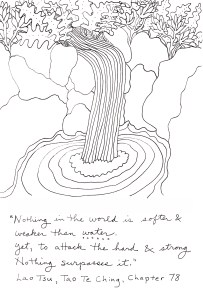 "Nothing in the world is softer &
weaker than water.
Yet, to attack the hard & strong
Nothing surpasses it."
Lao Tsu, Tao Te Ching, Chapter 78